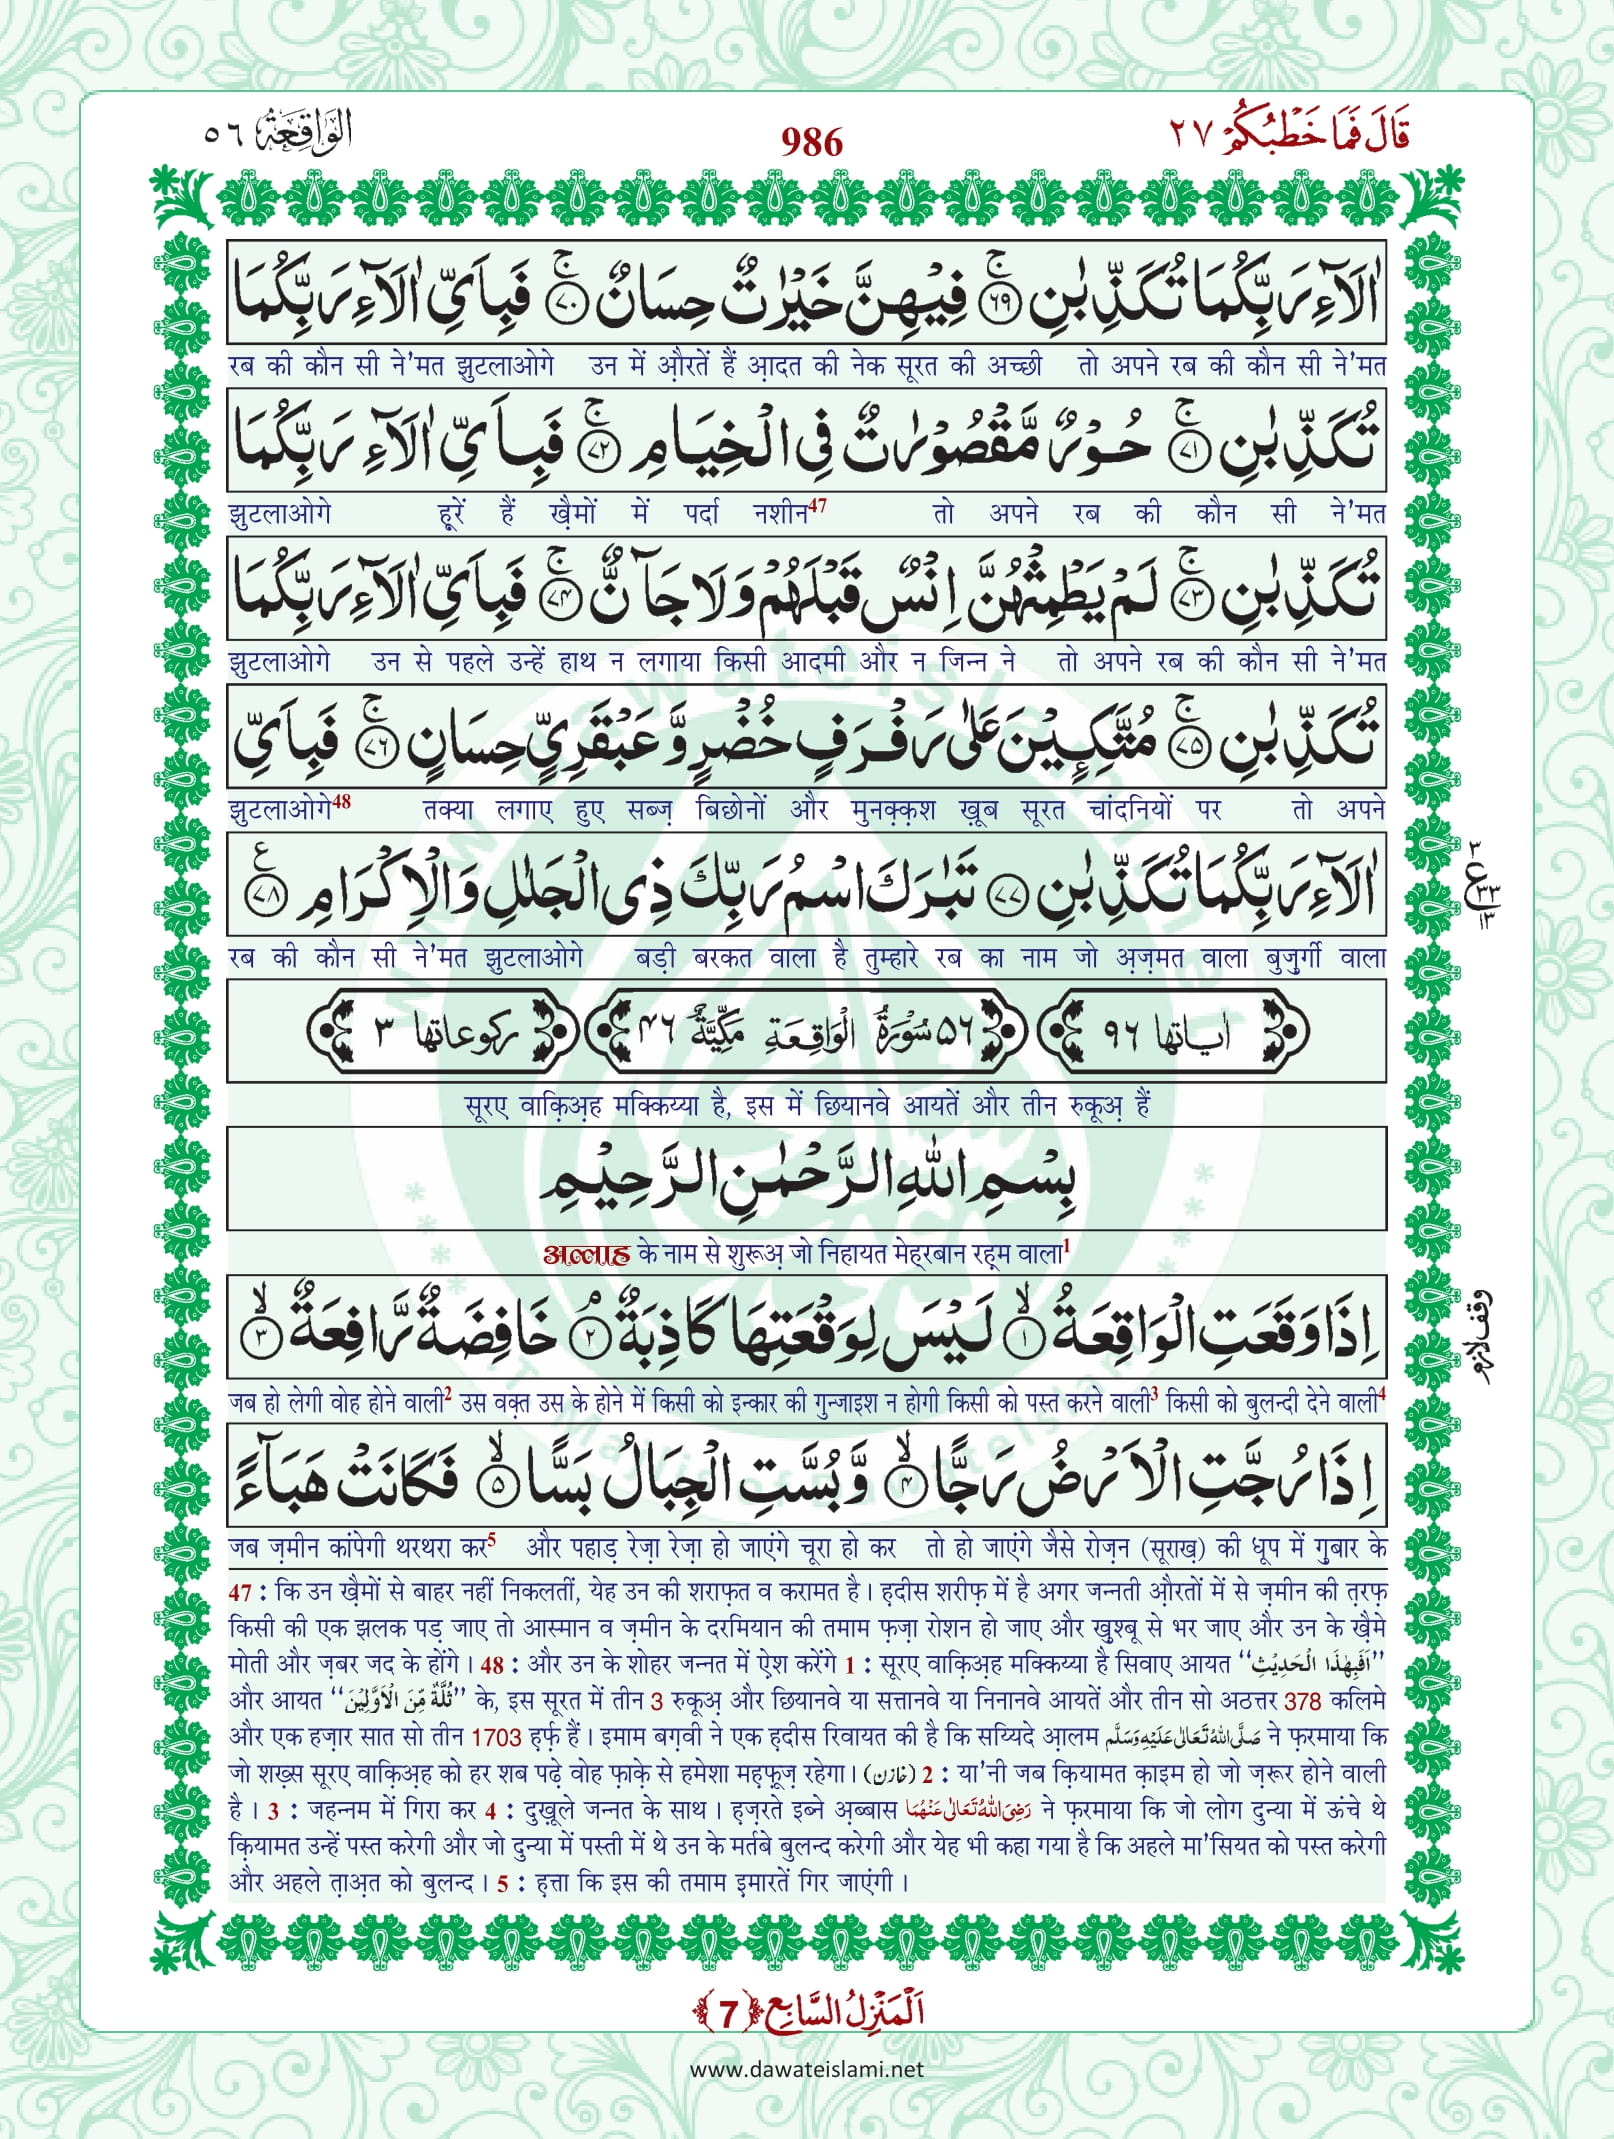 قَالَ فَمَا خَطْبُكُمْ ٢٧
986
الْوَاقِعَةُ ٥٦
اٰلَآءِ رَبِّكُمَا تُكَذِّبٰنِ ۚ﴿۶۹﴾ فِیْهِنَّ خَیْرٰتٌ حِسَانٌ ۚ﴿۷۰﴾ فَبِاَیِّ اٰلَآءِ رَبِّكُمَا
रब की कौन सी ने'मत झुटलाओगे उन में औ़रतें हैं आ़दत की नेक सूरत की अच्छी तो अपने रब की कौन सी ने'मत
تُكَذِّبٰنِ ۚ﴿۷۱﴾ حُوْرٌ مَّقْصُوْرٰتٌ فِی الْخِیَامِ ۚ﴿۷۲﴾ فَبِاَیِّ اٰلَآءِ رَبِّكُمَا
झुटलाओगे हूरें हैं ख़ैमों में पर्दा नशीन47 तो अपने रब की कौन सी ने'मत
تُكَذِّبٰنِ ۚ﴿۷۳﴾ لَمْ یَطْمِثْهُنَّ اِنْسٌ قَبْلَهُمْ وَلَا جَآنٌّ ۚ﴿۷۴﴾ فَبِاَیِّ اٰلَآءِ رَبِّكُمَا
झुटलाओगे उन से पहले उन्हें हाथ न लगाया किसी आदमी और न जिन्न ने तो अपने रब की कौन सी ने'मत
تُكَذِّبٰنِ ۚ﴿۷۵﴾ مُتَّكِـِٕیْنَ عَلٰی رَفْرَفٍ خُضْرٍ وَّ عَبْقَرِیٍّ حِسَانٍ ۚ﴿۷۶﴾ فَبِاَیِّ
झुटलाओगे48 तक्या लगाए हुए सब्ज़ बिछोनों और मुनक़्क़श ख़ूब सूरत चांदनियों पर तो अपने
اٰلَآءِ رَبِّكُمَا تُكَذِّبٰنِ ﴿۷۷﴾ تَبٰرَكَ اسْمُ رَبِّكَ ذِی الْجَلٰلِ وَالْاِكْرَامِ ﴿۷۸﴾ ع
٣ ع ٣٣ ١٣
रब की कौन सी ने'मत झुटलाओगे बड़ी बरकत वाला है तुम्हारे रब का नाम जो अ़ज़मत वाला बुज़ुर्गी वाला
اٰیاتها ٩٦ ٥٦ سُوْرَةُ الْوَاقِعَةِ مَكِّیَّةٌ ٤٦ ركوعاتها ٣
सूरए वाक़िअ़ह मक्किय्या है, इस में छियानवे आयतें और तीन रुकूअ़ हैं
بِسْمِ اللهِ الرَّحْمٰنِ الرَّحِیْمِ
अल्लाह के नाम से शुरूअ़ जो निहायत मेहरबान रह़म वाला1
اِذَا وَقَعَتِ الْوَاقِعَةُ ۙ﴿۱﴾ لَیْسَ لِوَقْعَتِهَا كَاذِبَةٌ ۘ﴿۲﴾ خَافِضَةٌ رَّافِعَةٌ ۙ﴿۳﴾
وقف لازم
जब हो लेगी वोह होने वाली2 उस वक़्त उस के होने में किसी को इन्कार की गुन्जाइश न होगी किसी को पस्त करने वाली3 किसी को बुलन्दी देने वाली4
اِذَا رُجَّتِ الْاَرْضُ رَجًّا ۙ﴿۴﴾ وَّ بُسَّتِ الْجِبَالُ بَسًّا ۙ﴿۵﴾ فَكَانَتْ هَبَآءً
जब ज़मीन कांपेगी थरथरा कर5 और पहाड़ रेज़ा रेज़ा हो जाएंगे चूरा हो कर तो हो जाएंगे जैसे रोज़न (सूराख़) की धूप में ग़ुबार के
47 : कि उन ख़ैमों से बाहर नहीं निकलतीं, येह उन की शराफ़त व करामत है। ह़दीस शरीफ़ में है अगर जन्नती औ़रतों में से ज़मीन की त़रफ़
किसी की एक झलक पड़ जाए तो आस्मान व ज़मीन के दरमियान की तमाम फ़ज़ा रोशन हो जाए और ख़ुश्बू से भर जाए और उन के ख़ैमे
मोती और ज़बर जद के होंगे। 48 : और उन के शोहर जन्नत में ऐश करेंगे 1 : सूरए वाक़िअ़ह मक्किय्या है सिवाए आयत ‘‘اَفَبِهٰذَا الْحَدِیْثِ’’
और आयत ‘‘ثُلَّةٌ مِّنَ الْاَوَّلِیْنَ’’ के, इस सूरत में तीन 3 रुकूअ़ और छियानवे या सत्तानवे या निनानवे आयतें और तीन सो अठत्तर 378 कलिमे
और एक हज़ार सात सो तीन 1703 ह़र्फ़ हैं। इमाम बग़वी ने एक ह़दीस रिवायत की है कि सय्यिदे आ़लम صَلَّى اللهُ تَعَالٰى عَلَيْهِ وَسَلَّم ने फ़रमाया कि
जो शख़्स सूरए वाक़िअ़ह को हर शब पढ़े वोह फ़ाक़े से हमेशा मह़फ़ूज़ रहेगा। (خازن) 2 : या'नी जब क़ियामत क़ाइम हो जो ज़रूर होने वाली
है। 3 : जहन्नम में गिरा कर 4 : दुख़ूले जन्नत के साथ। ह़ज़रते इब्ने अ़ब्बास رَضِىَ اللهُ تَعَالٰى عَنْهُمَا ने फ़रमाया कि जो लोग दुन्या में ऊंचे थे
क़ियामत उन्हें पस्त करेगी और जो दुन्या में पस्ती में थे उन के मर्तबे बुलन्द करेगी और येह भी कहा गया है कि अहले मा'सियत को पस्त करेगी
और अहले त़ाअ़त को बुलन्द। 5 : ह़त्ता कि इस की तमाम इ़मारतें गिर जाएंगी।
اَلْمَنْزِلُ السَّابِع ﴿7﴾
www.dawateislami.net